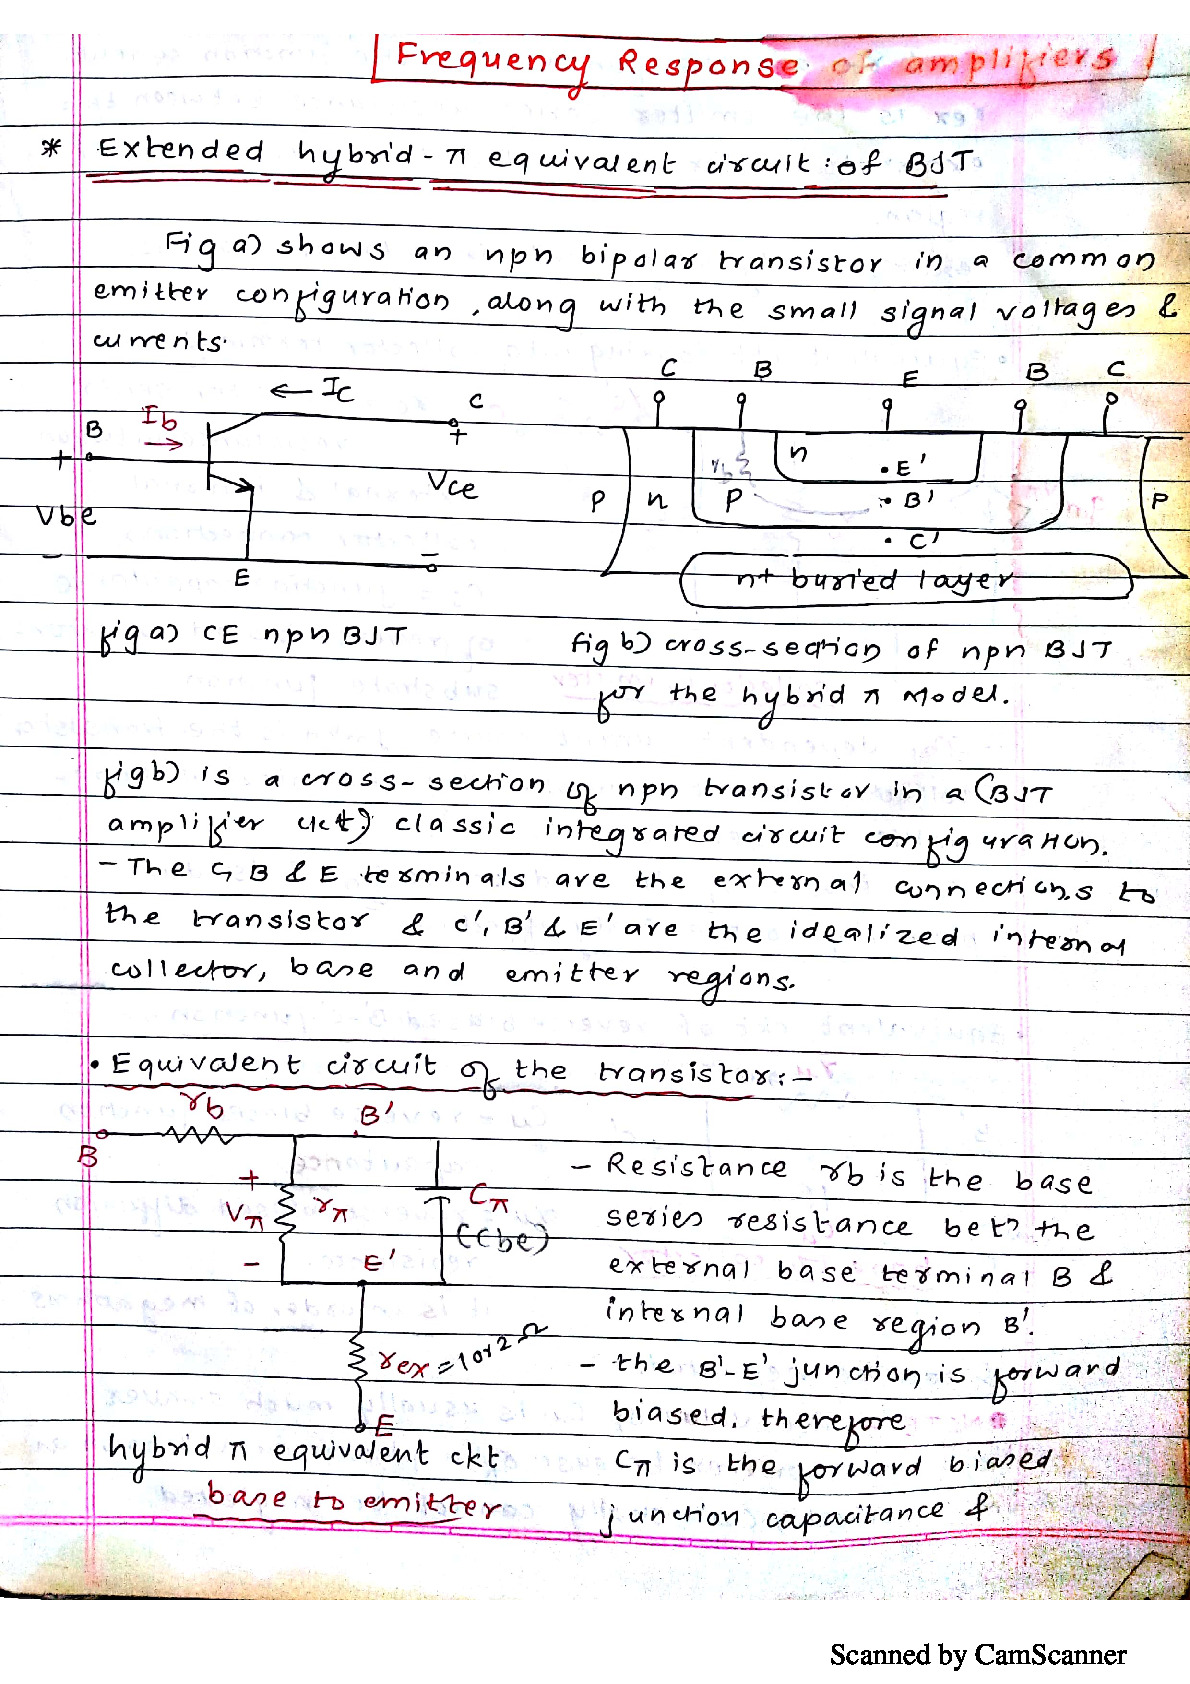 Frequency Response of amplifiers
* Extended hybrid-π equivalent circuit: of BJT
Fig a) shows an npn bipolar transistor in a common
emitter configuration, along with the small signal voltages &
currents.
← Ic
C
B Ib →
+ +
Vce
Vbe
- -
E
C B E B C
n
rb
• E'
P n P • B' P
• C'
n+ buried layer
fig a) CE npn BJT
fig b) cross-section of npn BJT
for the hybrid π Model.
fig b) is a cross-section of npn transistor in a (BJT
amplifier ckt) classic integrated circuit configuration.
- The C, B & E terminals are the external connections to
the transistor & C', B' & E' are the idealized internal
collector, base and emitter regions.
• Equivalent circuit of the transistor:-
rb B'
B
+
Vπ rπ Cπ
(Cbe)
- E'
rex = 1 or 2 Ω
E
hybrid π equivalent ckt
base to emitter
- Resistance rb is the base
series resistance betn the
external base terminal B &
internal base region B'.
- the B'-E' junction is forward
biased. therefore
Cπ is the forward biased
junction capacitance &
Scanned by CamScanner